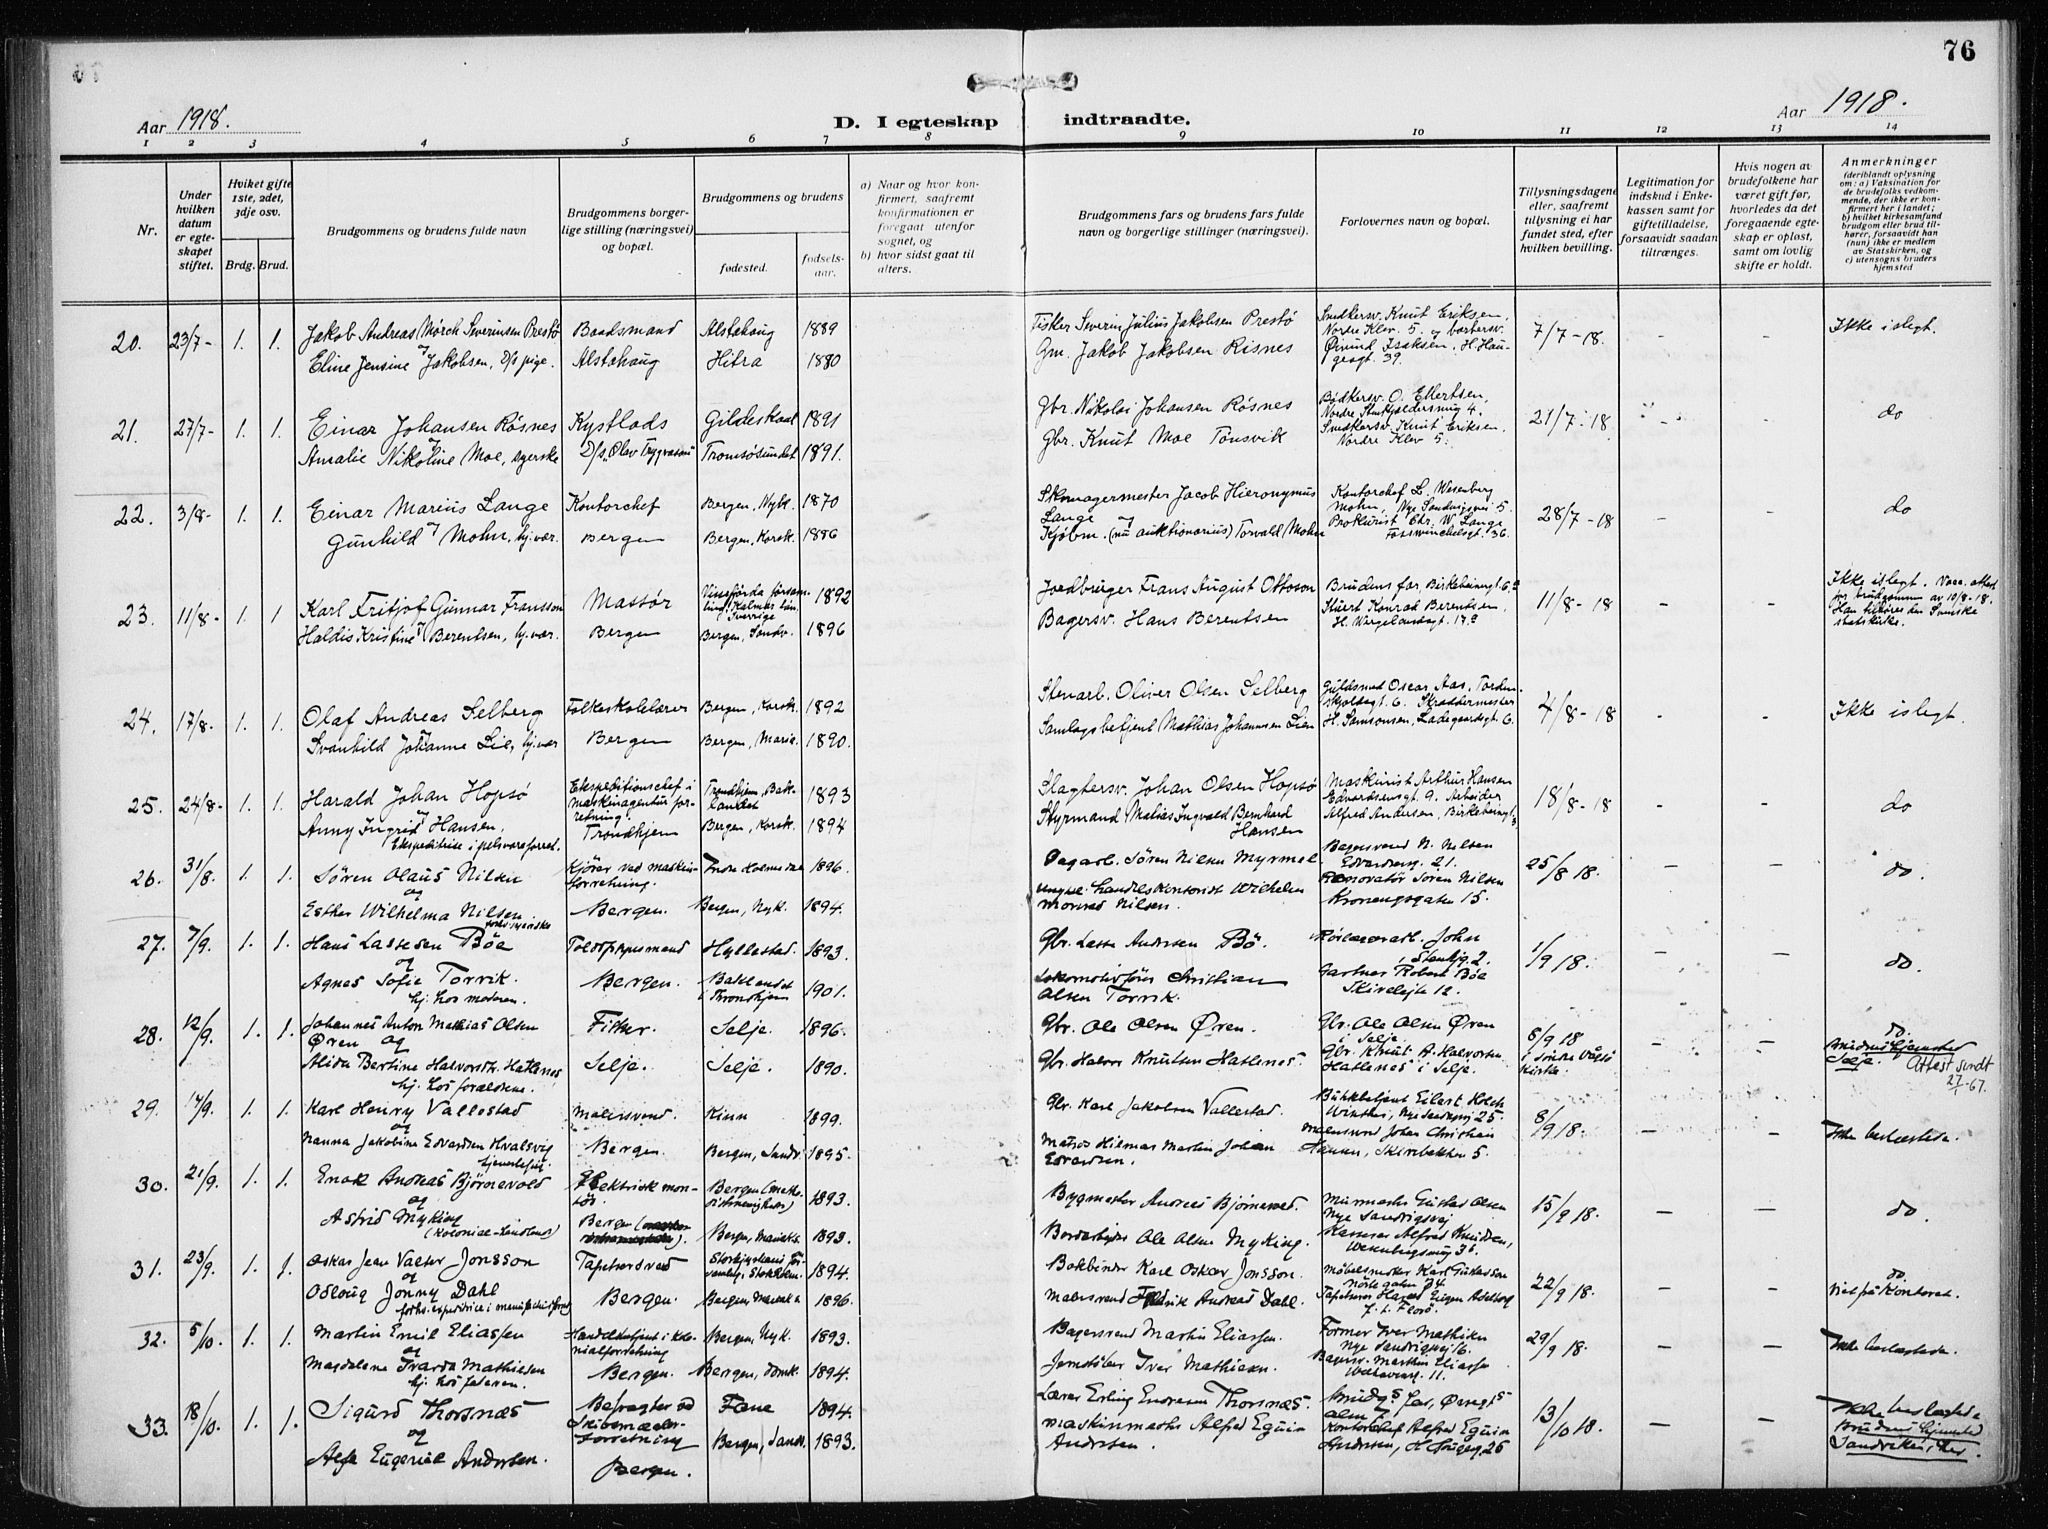 76
Aar 1918.
D. I egteskap indtraadte.
Aar 1918.
1 2 3 4 5 6 7 8 9 10 11 12 13 14
Nr.
Under hvilken datum er egteskapet stiftet.
Hviket gifte 1ste, 2det, 3dje osv.
Brdg. Brud.
Brudgommens og brudens fulde navn
Brudgommens borgerlige stilling (næringsvei) og bopæl.
Brudgommens og brudens
fødested.
fødselsaar.
a) Naar og hvor konfirmert, saafremt konfirmationen er foregaaet utenfor sognet, og
b) hvor sidst gaat til alters.
Brudgommens fars og brudens fars fulde navn og borgerlige stillinger (næringsvei).
Forlovernes navn og bopæl.
Tillysningsdagene eller, saafremt tillysning ei har fundet sted, efter hvilken bevilling.
Legitimation for indskud i Enkekassen samt for giftetilladelse, forsaavidt saadan tiltrænges.
Hvis nogen av brudefolkene har været gift før, hvorledes da det foregaaende egteskap er opløst, samt om lovlig skifte er holdt.
Anmerkninger
(deriblandt oplysning om: a) Vaksination for de brudefolks vedkommende, der ikke er konfirmert her i landet; b) hvilket kirkesamfund brudgom eller brud tilhører, forsaavidt han (hun) ikke er medlem av Statskirken, og c) utensogns bruders hjemsted
20. 23/7- 1. 1. Jakob Andreas Mørch Severinsen Prestø Baadsmand Alstahaug 1889 Fisker Severin Julius Jakobsen Prestø Snedkersv. Knut Eriksen, Nordre Klev 5. 7/7-18. - - Ikke islegt.
og
Eline Jensine Jakobsen, pige. Alstahaug Hitra 1880 Gm. Jakob Jakobsen Risnes Øivind Isaksen, H. Haugesgt. 39.
21. 27/7- 1. 1. Einar Johansen Røsnes Kystlods Gildeskaal 1891 Gbr. Nikolai Johansen Røsnes Bødkersv. O. Ellertsen, 21/7-18 - - do
og
Amalie Nikoline Moe, syerske D/s „Olav Trygvason" Tromsøsundet 1891. Gbr. Knut Moe Tønsvik Snedkersv. Knut Eriksen, Nordre Klev 5.
22. 3/8- 1. 1. Einar Marius Lange Kontorchef Bergen, Nyk. 1870 Skomagermester Jacob Hieronymus Lange Kontorchef L. Wesenberg Mohn, Nye Sandvigsvei 5. 28/7-18 - - do
og
Gunhild Mohn, hj.vær. Bergen Bergen, Korsk. 1886 Kjøbm. (nu auktionarius) Torvald Mohn Prokurist Chr. W. Lange Fosswinchelsgt. 36.
23. 11/8- 1. 1. Karl Fritjof Gunnar Fransson Massør Vissefjorda församling, Kalmar län, Sverige 1892 Jordbruger Frans August Ottoson Brudens far, 11/8-18 - - Ikke islegt. Vacc. attest for brudgommen av 10/8-18. Han tilhører den Svenske statskirke.
og
Haldis Kristine Berentsen, hj.vær. Bergen Bergen, Sandv. 1896 Bagersv. Hans Berentsen Stuert Konrad Berentsen, H. Wergelandsgt. 17a
24. 17/8- 1. 1. Olaf Andreas Selberg Folkeskolelærer Bergen, Korsk. 1892 Stenarb. Oliver Olsen Selberg Guldsmed Oscar Aas, Tordenskjoldsgt. 6. 4/8-18 - - Ikke islegt.
og
Svanhild Johanne Lie, hj.vær Bergen Bergen, Marie. 1890. Samlagsbetjent Mathias Johannesen Lien Skræddermester H. Samsonsen, Ladegaardsgt. 6.
25. 24/8- 1. 1. Harald Johan Hopsø Ekspeditionschef i maskinagentur forretning. Trondhjem, Baklandet 1893 Slagtersv. Johan Olsen Hopsø Maskinist Arthur Hansen Edvardsensgt. 9. 18/8-18 - - do
og
Anny Ingrid Hansen, Ekspeditrise i pelsvareforret. Trondhjem Bergen, Korsk. 1894 Styrmand Matias Ingvald Bernhard Hansen Arbeider Alfred Andersen,
26. 31/8. 1. 1. Søren Olaus Nilsen Kjører ved maskinforretning. 1896. Dagarb. Søren Nilsen Myrmel Bagersvend N. Nilsen 21. 25/8 18. - - do.
og
Esther Wilhelma Nilsen Bergen. Bergen, Nyk. 1894. Wilhelm Monrad Nilsen. Renovatør Søren Nilsen 15.
27. 7/9. 1. 1. Hans Lassesen Böe Toldopsynsmand Hyllestad. 1893. Gbr. Lasse Andersen Bö. John 1/9 18. - - do.
og
Agnes Sofie Torvik. hj. hos moderen. Bergen. Baklandet i Throndhjem 1901. Lokomotivförer Christian Olsen Torvik. Gartner Robert Böe Skivebakken 12.
28. 12/9. 1. 1. Johannes Anton Mathias Olsen Øren og Fisker. Selje. 1896. Gbr. Ole Olsen Øren. Gbr. Ole Olsen Øren i Selje. 8/9 18 i Søndre Vågsö kirke. - - do. Brudens hjemsted Selje. Attest sendt 27/1-67.
Alida Bertine Halvorsdtr. Hatlenes hj. hos forældrene. Selje. Selje. 1890. Gbr. Halvor Knutsen Hatlenes. Gbr. Knut A. Halvorsen Hatlenes i Selje.
29. 14/9. 1. 1. Karl Henry Vallestad Malersvend. Kinn 1899. Gbr. Karl Jakobsen Vallestad. Eilert Holck 25. 8/9 18. - - Ikke beslægtede.
og
Nanna Jakobine Edvardsen Hvalsvig Bergen. Bergen, Sandv. 1895. Matros Hilmar Martin Johan Edvardsen. Malersvend Johan Christian Hansen, Skivebakken 5
30. 21/9. 1. 1. Enok Andreas Bjørnevold Elektrisk montör Bergen 1893. Bygmester Andreas Bjørnevold. Gustav Olsen Nye Sandvigsvej 15/9 18. - - do
og
Astrid Myking Bergen Bergen, Mariek. 1893. Ole Olsen Myking. Kasserer Alfred Knudsen,
31. 23/9. 1. 1. Oskar Jean Valter Jonsson Tapetsersvend Storkyrkans församling, Stokholm. 1894. Bokbinder Karl Oskar Jonsson. Møbelsnekker Karl Gustavson 34 22/9 18. - - do Viet på kontoret.
og
Oslaug Jonny Dahl Bergen. Bergen, Mariek. 1896. Malersvend Fredrik Andreas Dahl.
32. 5/10. 1. 1. Martin Emil Eliassen Handelsbetjent i kolonialforretning Bergen, Nyk. 1893. Bagersvend Martin Eliassen. Former Iver Mathisen Nye Sandvigsvej 16. 29/9 18. - - Ikke beslægtede.
og
Magdalene Mathiesen hj. hos faderen. Bergen. Bergen, Domk. 1894. Jernstöber Iver Mathiesen. Bagersv. Marthin Eliassen 11.
33. 18/10. 1. 1. Sigurd Thorsnæs Befragter ved skibsmæglerforretning Fane 1894. Lærer Erling Endresen Thorsnæs. 13/10 18. - - Ikke beslægtede Brudens hjemsted Sandviken, her.
og
Alfa Eugenie Andersen. Bergen. Bergen, Sandv. 1893. Maskinmester Alfred Eguin Andersen. Kontorchef Alfred Eguin Andersen, H. Haugesg. 26